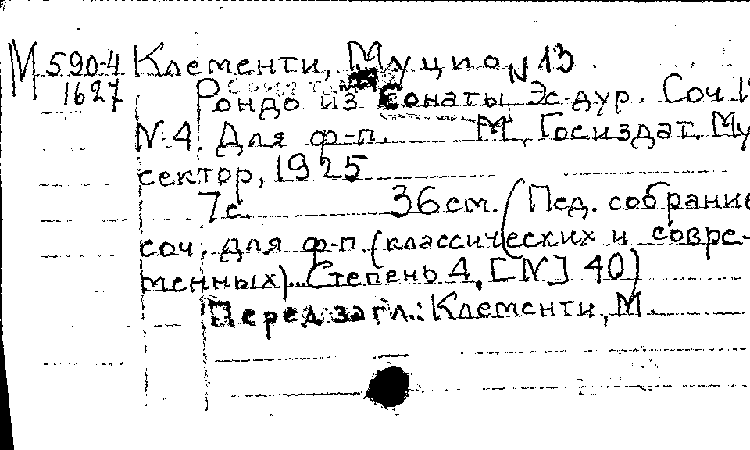 М 590-4 Клементи, Муцио, N 13
1627 Рондо из Сонаты Эс-дур. Соч.
N. 4. Для ф-п. М., Госиздат. Му
сектор, 1925
7 с. 36 см. (Пед. собрание
соч. для ф-п. (классических и совре-
менных). Степень 4, [N] 40)
Перед загл.: Клементи, М.